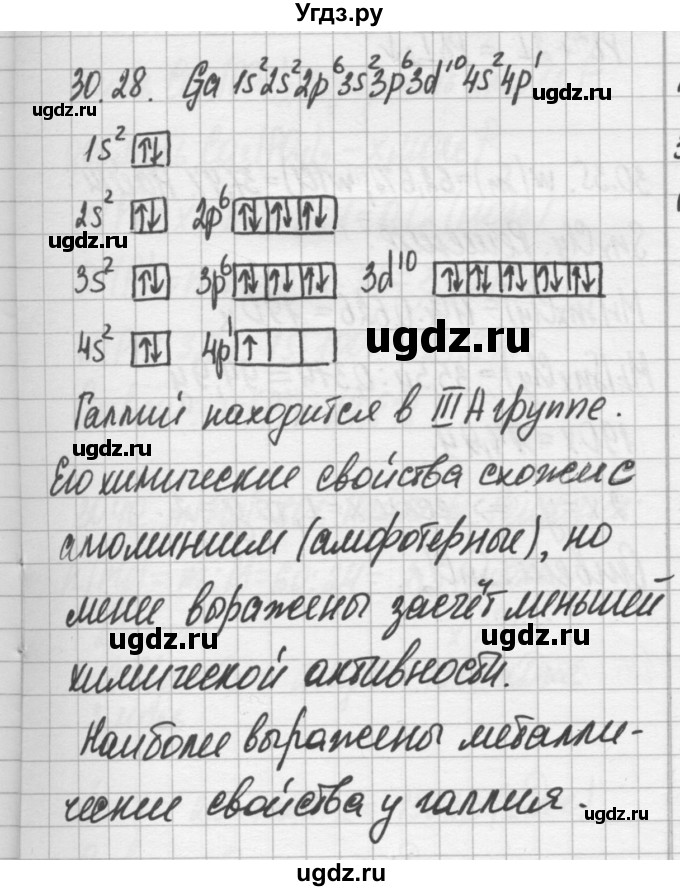 Угдз.ру
30.28. Ga 1s²2s²2p⁶3s²3p⁶3d¹⁰4s²4p¹
1s² ↑↓
ugdz.ru
2s² ↑↓ 2p⁶ ↑↓ ↑↓ ↑↓
ugdz.ru
3s² ↑↓ 3p⁶ ↑↓ ↑↓ ↑↓ 3d¹⁰ ↑↓ ↑↓ ↑↓ ↑↓ ↑↓
ugdz.ru
4s² ↑↓ 4p¹ ↑
ugdz.ru
Галлий находится в III А группе.
Его химические свойства схожи с
алюминием (амфотерные), но
менее выражены засчёт меньшей
ugdz.ru
ugdz.ru
химической активности.
Наиболее выражены металли-
ческие свойства у галлия.
ugdz.ru
ugdz.ru